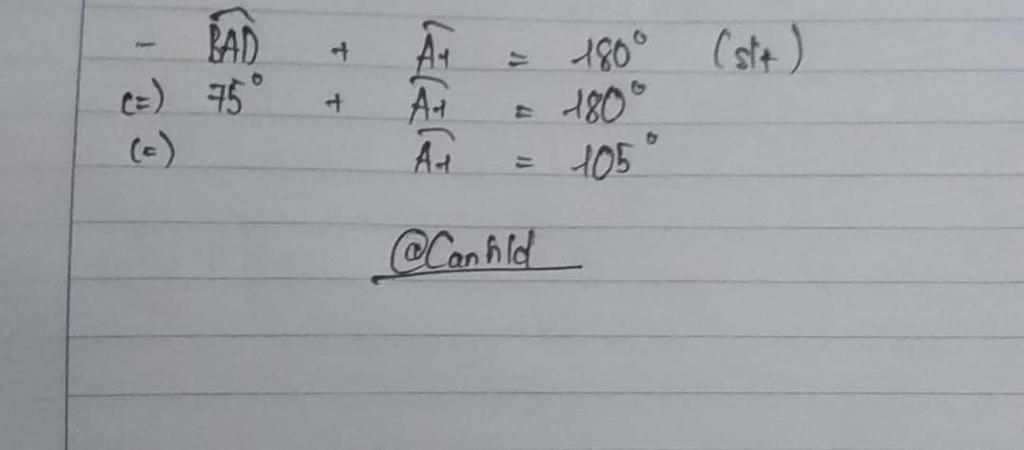 - \widehat{BAD} + \widehat{A1} = 180° (slt)
(=) 75° + \widehat{A1} = 180°
(=) \widehat{A1} = 105°
@Canhld